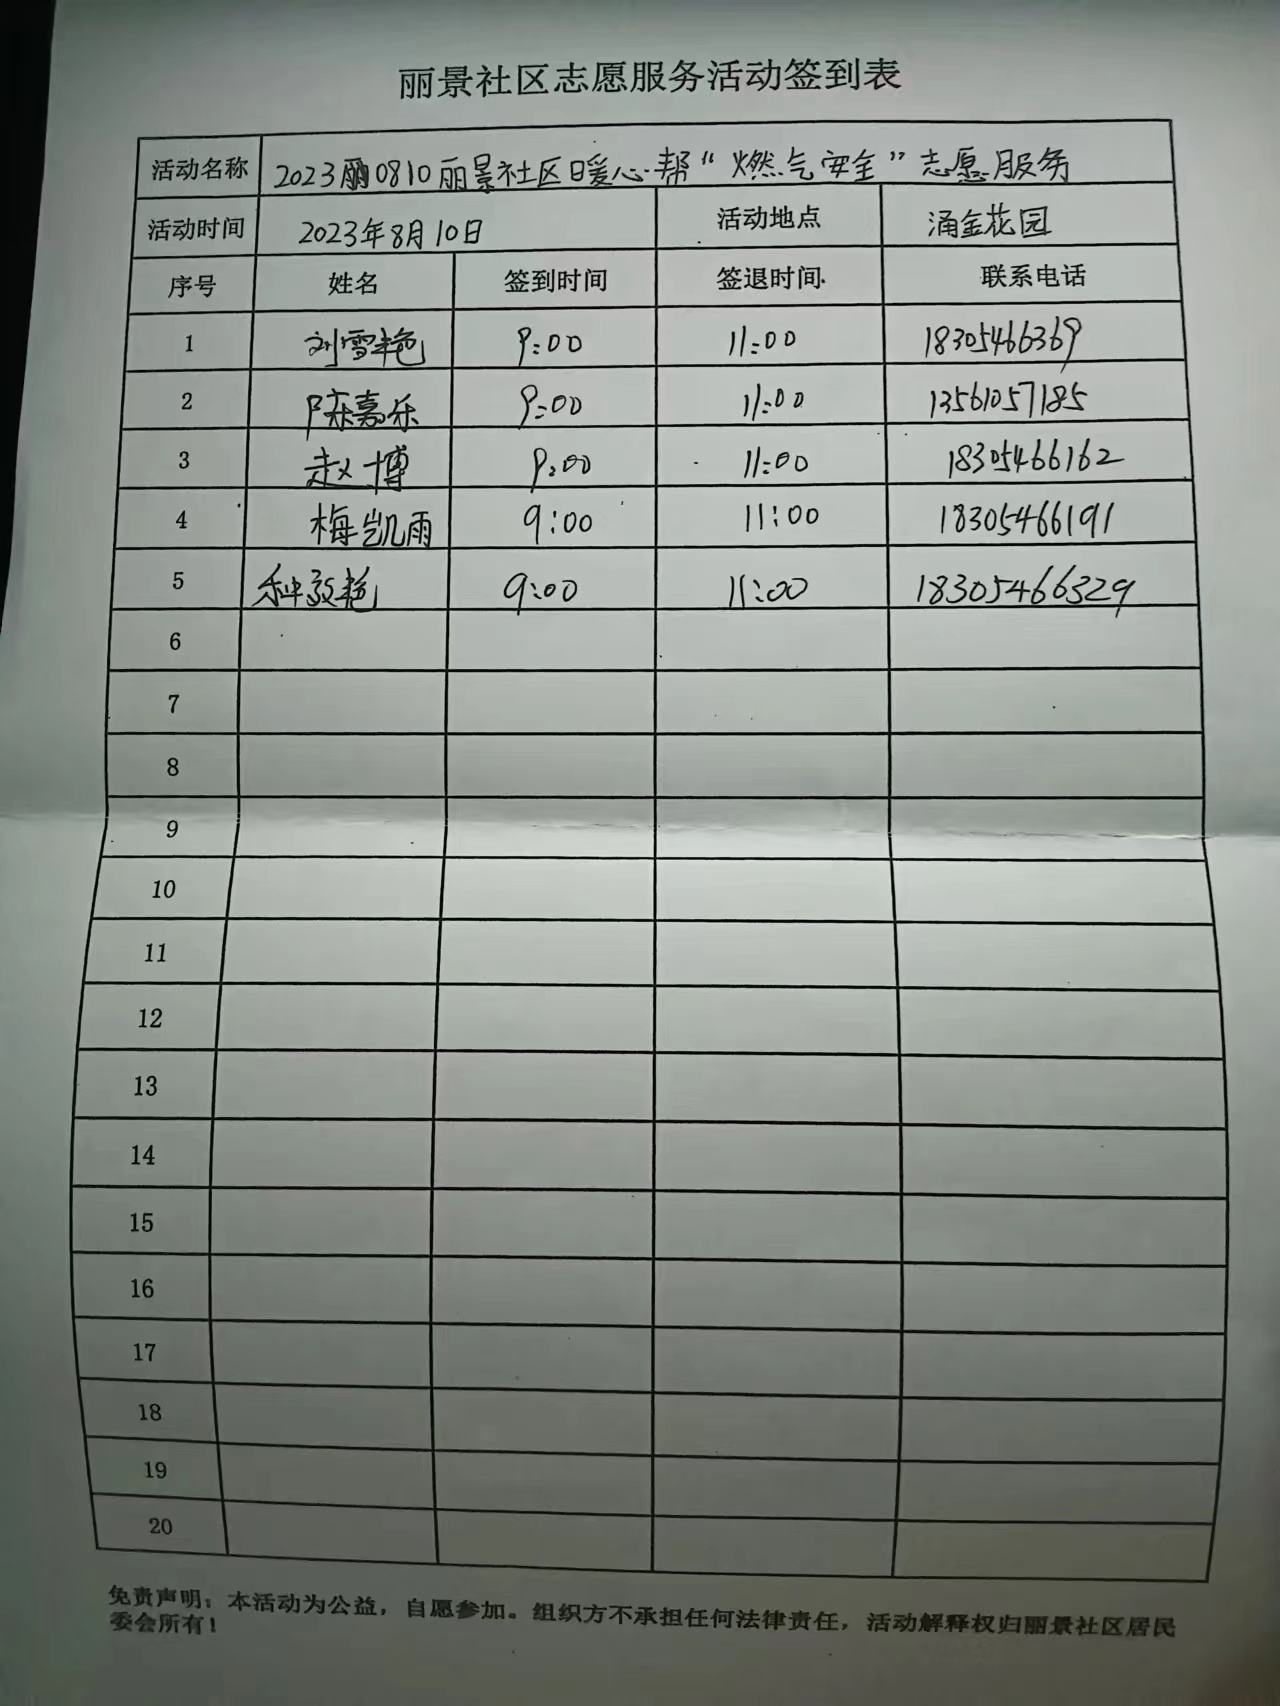 丽景社区志愿服务活动签到表
活动名称 2023丽0810丽景社区暖心帮“燃气安全”志愿服务
活动时间 2023年8月10日 活动地点 涌金花园
序号 姓名 签到时间 签退时间 联系电话
1 刘雪艳 9:00 11:00 18305466369
2 陈嘉乐 9:00 11:00 13561057185
3 赵博 9:00 11:00 18305466162
4 梅凯雨 9:00 11:00 18305466191
5 艳 9:00 11:00 18305466329
6
7
8
9
10
11
12
13
14
15
16
17
18
19
20
免责声明：本活动为公益，自愿参加。组织方不承担任何法律责任，活动解释权归丽景社区居民
委会所有！